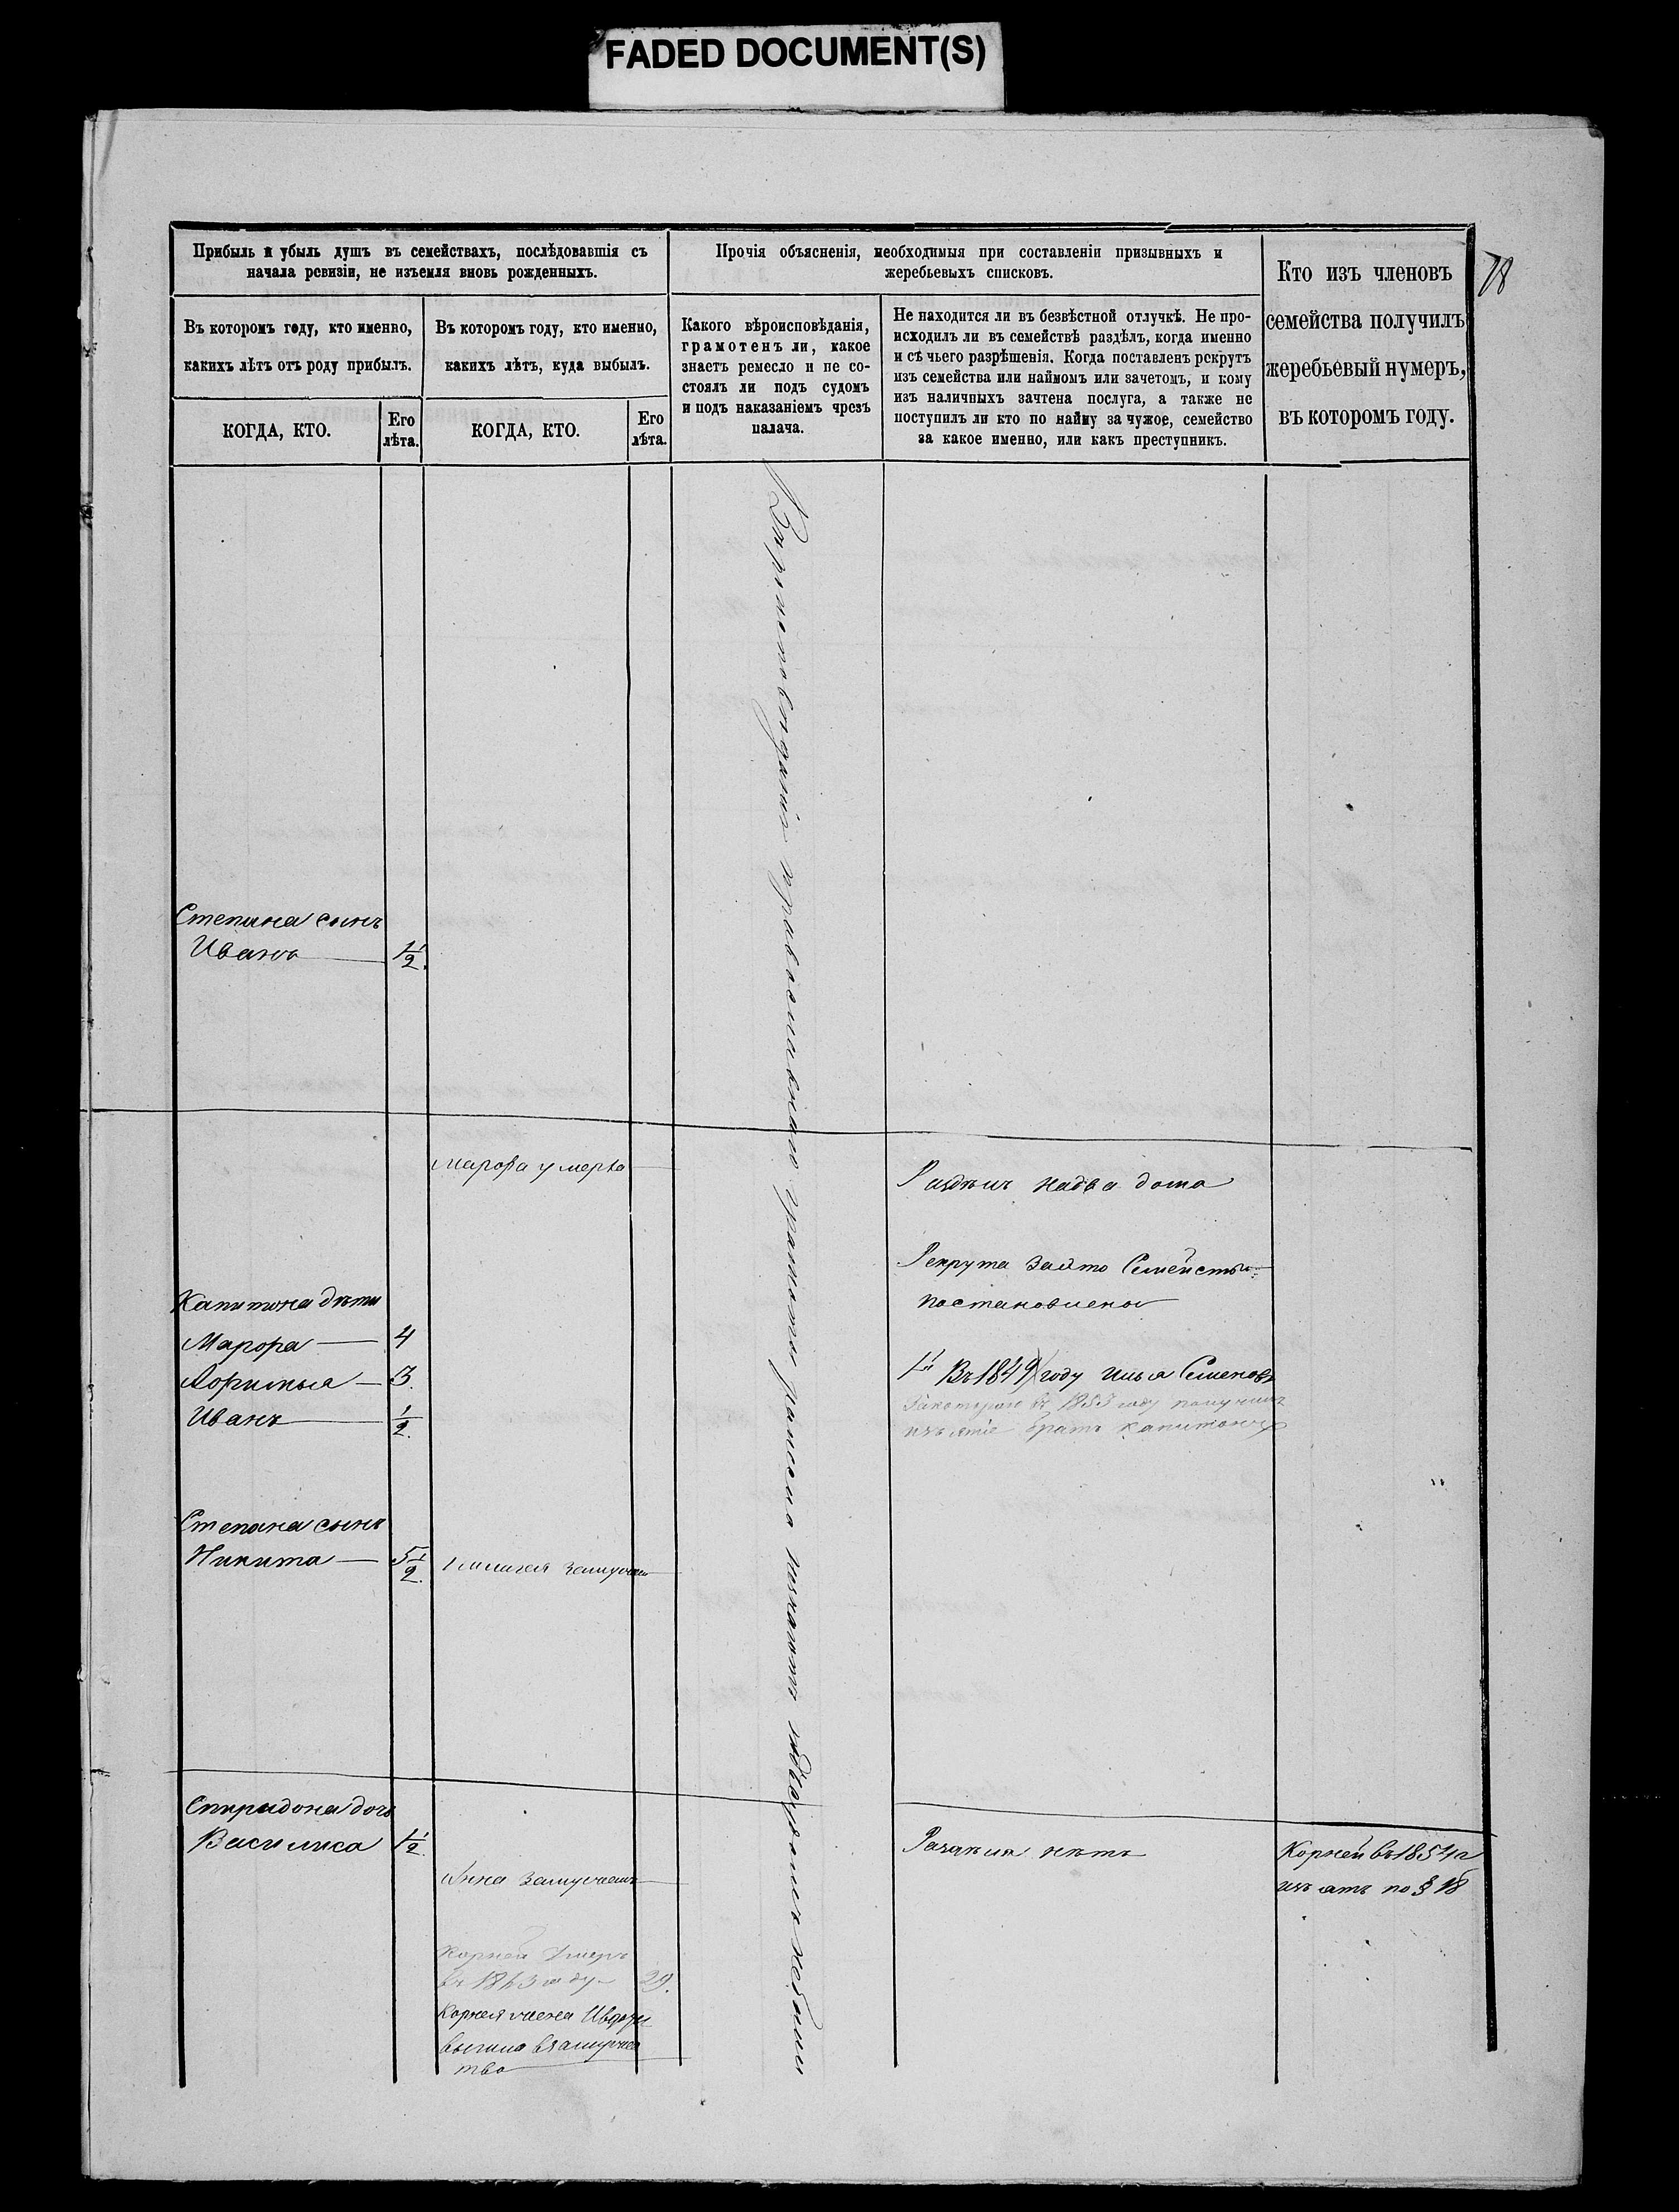 FADED DOCUMENT(S)
78
Прибыль и убыль душъ въ семействахъ, послѣдовавшія съ
начала ревизіи, не изъемля вновь рожденныхъ.
Въ которомъ году, кто именно,
какихъ лѣтъ отъ роду прибылъ.
КОГДА, КТО.
Его
лѣта.
Въ которомъ году, кто именно,
какихъ лѣтъ, куда выбылъ.
КОГДА, КТО.
Его
лѣта.
Прочія объясненія, необходимыя при составленіи призывныхъ и
жеребьевыхъ списковъ.
Какого вѣроисповѣданія,
грамотенъ ли, какое
знаетъ ремесло и не со-
стоялъ ли подъ судомъ
и подъ наказаніемъ чрезъ
палача.
Не находится ли въ безвѣстной отлучкѣ. Не про-
исходилъ ли въ семействѣ раздѣлъ, когда именно
и съ чьего разрѣшенія. Когда поставленъ рекрутъ
изъ семейства или наймомъ или зачетомъ, и кому
изъ наличныхъ зачтена послуга, а также не
поступилъ ли кто по найму за чужое, семейство
за какое именно, или какъ преступникъ.
Кто изъ членовъ
семейства получилъ
жеребьевый нумеръ,
въ которомъ году.
Вѣроисповеданія православнаго грамоты
Степана сынъ
Иванъ 1/2
Марфа умерла
Раздѣлъ на два дома
Рекрута за это Семейство
Капитона дѣти
Марфа 4
3.
Иванъ 1/2.
Въ 1849 году Илья Семеновъ
въ 1853 году получилъ
изъятіе братъ Капитонъ
Степана сынъ
Никита 5 1/2.
замужъ
Спиридона дочь
Василиса 1/2
Анна замужъ
Раздѣла нѣтъ
Корней въ 1854 г
изъятъ по § 18
Корней Умеръ
въ 1863 году 29.
Корнея жена Авдотья
вышла въ замужес
тво